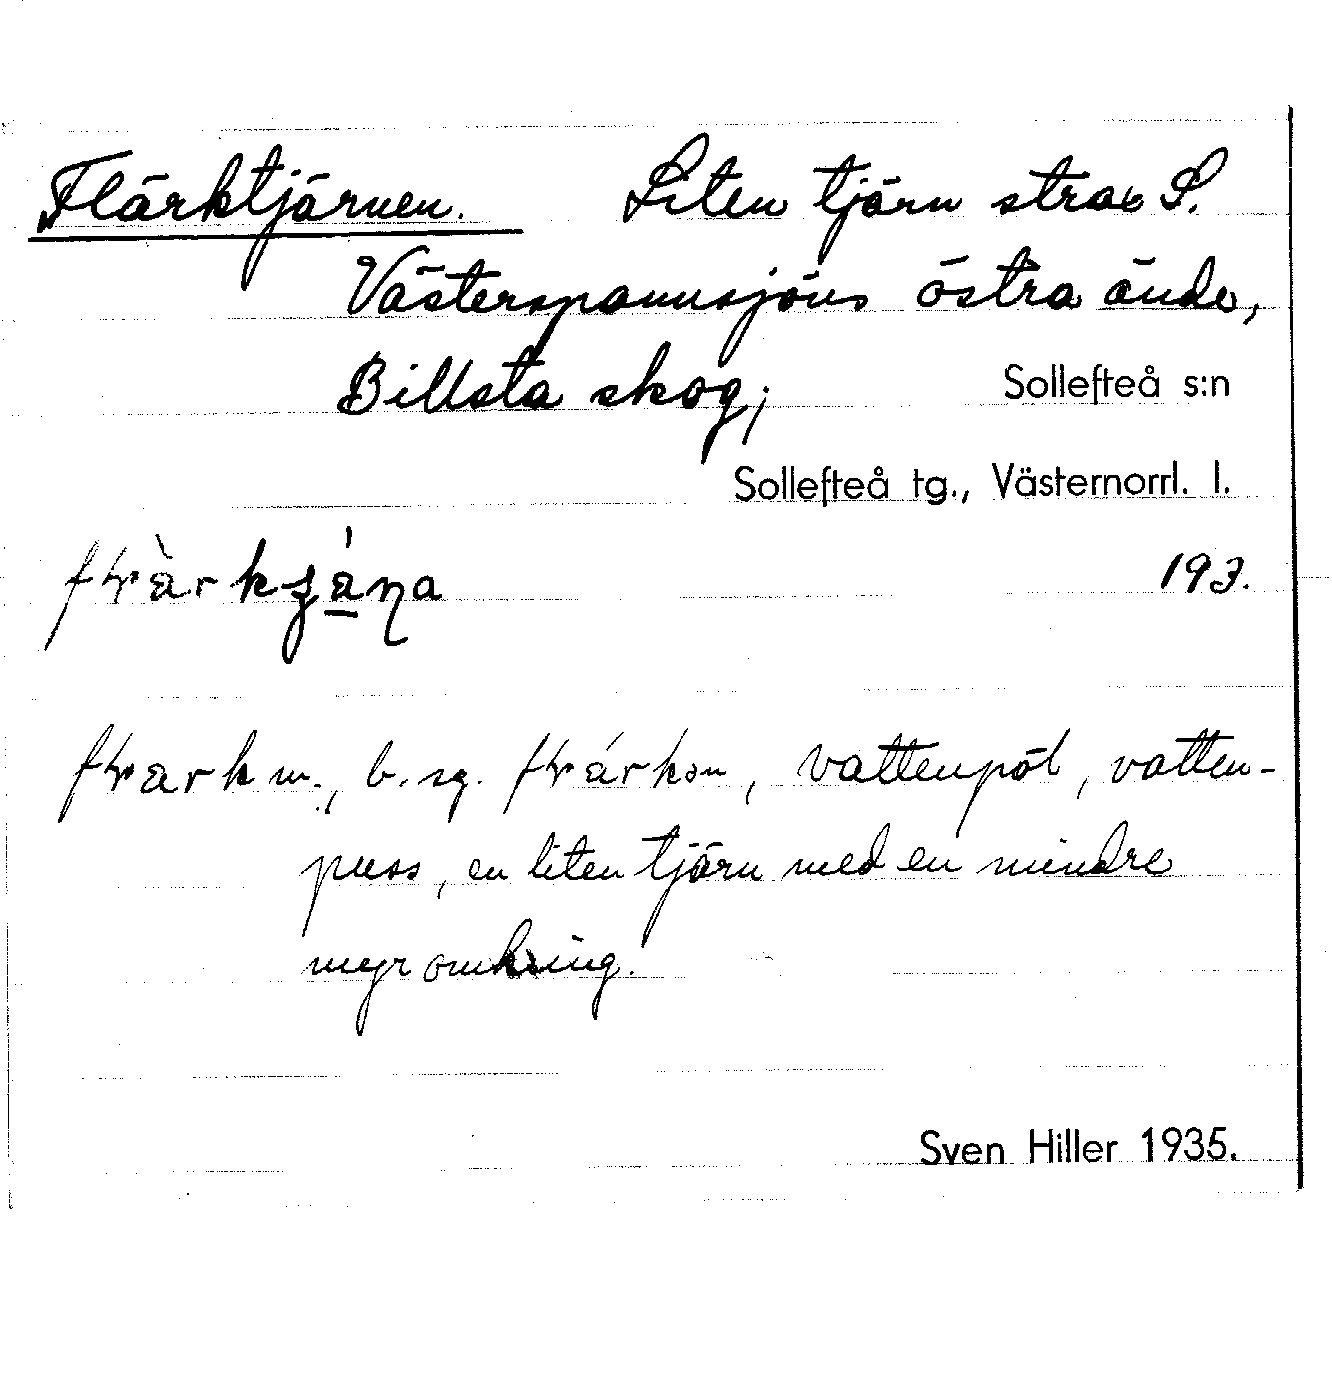 Flärktjärnen. Liten tjärn strax S.
Västerspannsjöns östra ände,
Billsta skog; Sollefteå s:n
Sollefteå tg., Västernorrl. l.
193.
m., b. sg. vattenpöl, vatten-
puss, en liten tjärn med en mindre
myr omkring.
Sven Hiller 1935.